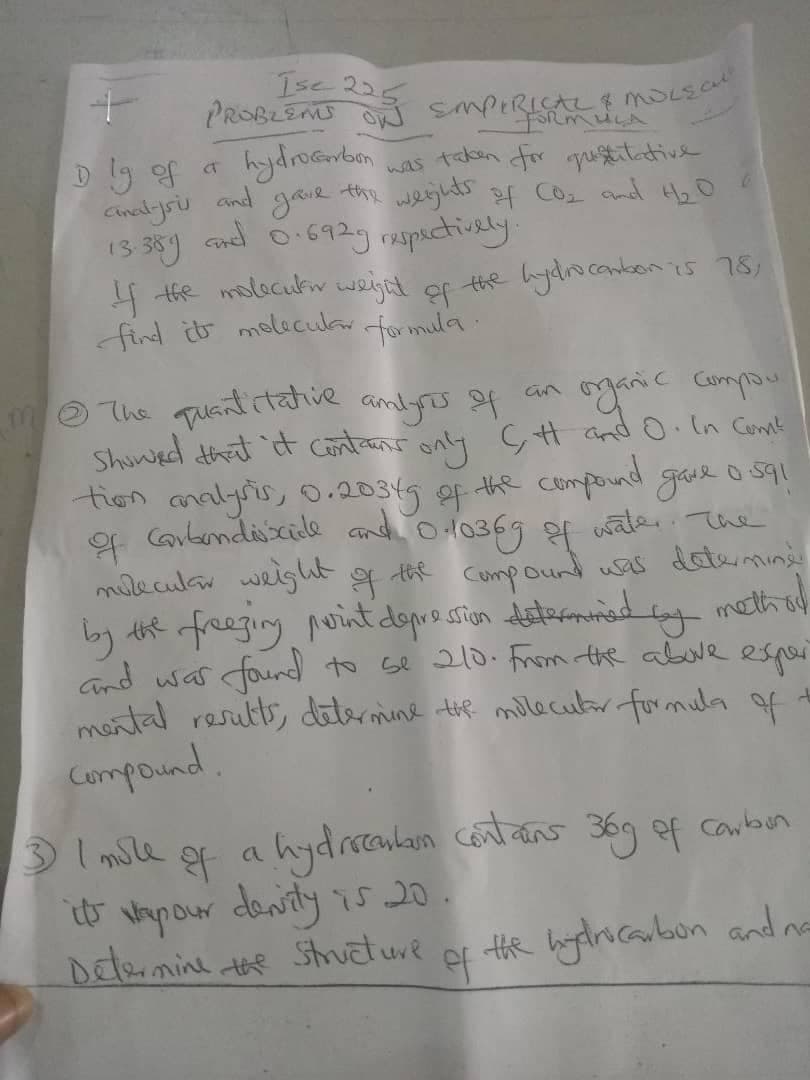 Isc 225
PROBLEMS ON EMPIRICAL & MOLECU
FORMULA
1) 1g of a hydrocarbon was taken for quatitative
analysis and gave the weights of CO2 and H2O
13.38g and 0.692g respectively.
If the molecular weight of the hydrocarbon is 78,
find its molecular formula.
② The quantitative analysis of an organic compou
showed that it contains only C, H and O. In comb
tion analysis, 0.2034g of the compound gave 0.591
of Carbondioxide and 0.1036g of water. The
molecular weight of the compound was determine
by the freezing point depression determined by method
and was found to be 210. From the above exper
mental results, determine the molecular formula of t
compound.
3) 1 mole of a hydrocarbon contains 36g of carbon
its vapour density is 20.
Determine the structure of the hydrocarbon and na